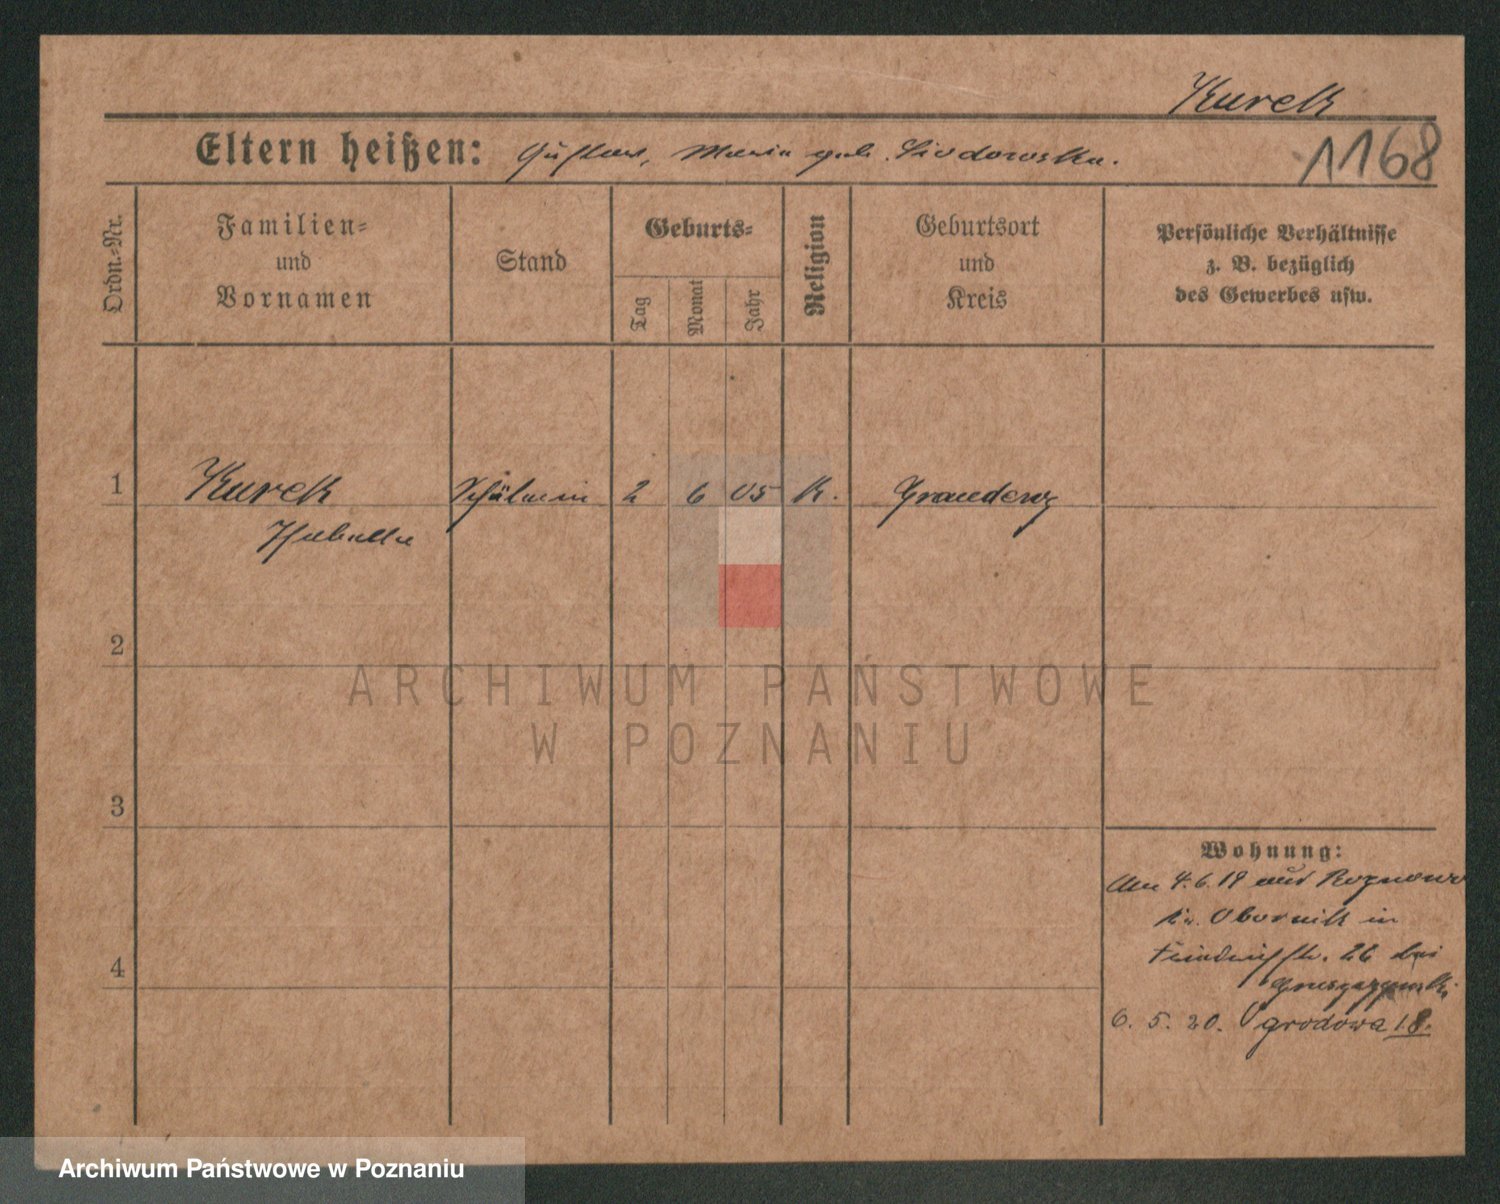 Kurek
1168
Eltern heißen: Gustav, Maria geb. Siodowska.
Ordn.-Nr.
Familien-
und
Vornamen
Stand
Geburts-
Tag
Monat
Jahr
Religion
Geburtsort
und
Kreis
Persönliche Verhältnisse
z. B. bezüglich
des Gewerbes usw.
1 Kurek Schülerin 2 6 05 K. Graudenz
Isabella
2
ARCHIWUM PAŃSTWOWE
W POZNANIU
3
Wohnung:
Am 4.6.19 aus Roznowo
Kr. Obornik in
26 bei
4
6. 5. 20. Ogrodowa 18.
Archiwum Państwowe w Poznaniu